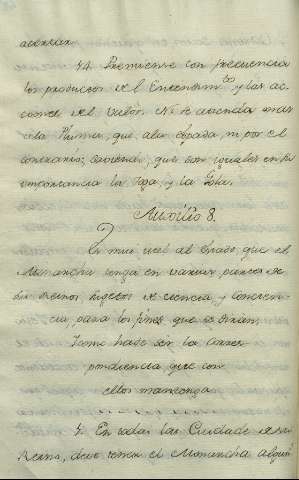 acertar.
14. Premiense con frecuencia
los productos del Entendim.to y las ac
ciones del valor. No se atienda mas
a la Pluma, que a la espada, ni por el
contrario;          que son iguales en la
importancia la Toga, y la Gola.
Auxilio 8.
Es mui util al Estado que el
Monarcha tenga en varias partes de
sus Reinos sugetos de ciencia, y concien-
cia para los fines que se diran;
Como hade ser la corres
pondiencia que con
ellos mantenga.
1. En todas las Ciudades de sus
Reinos, deve tener el Monarcha algun